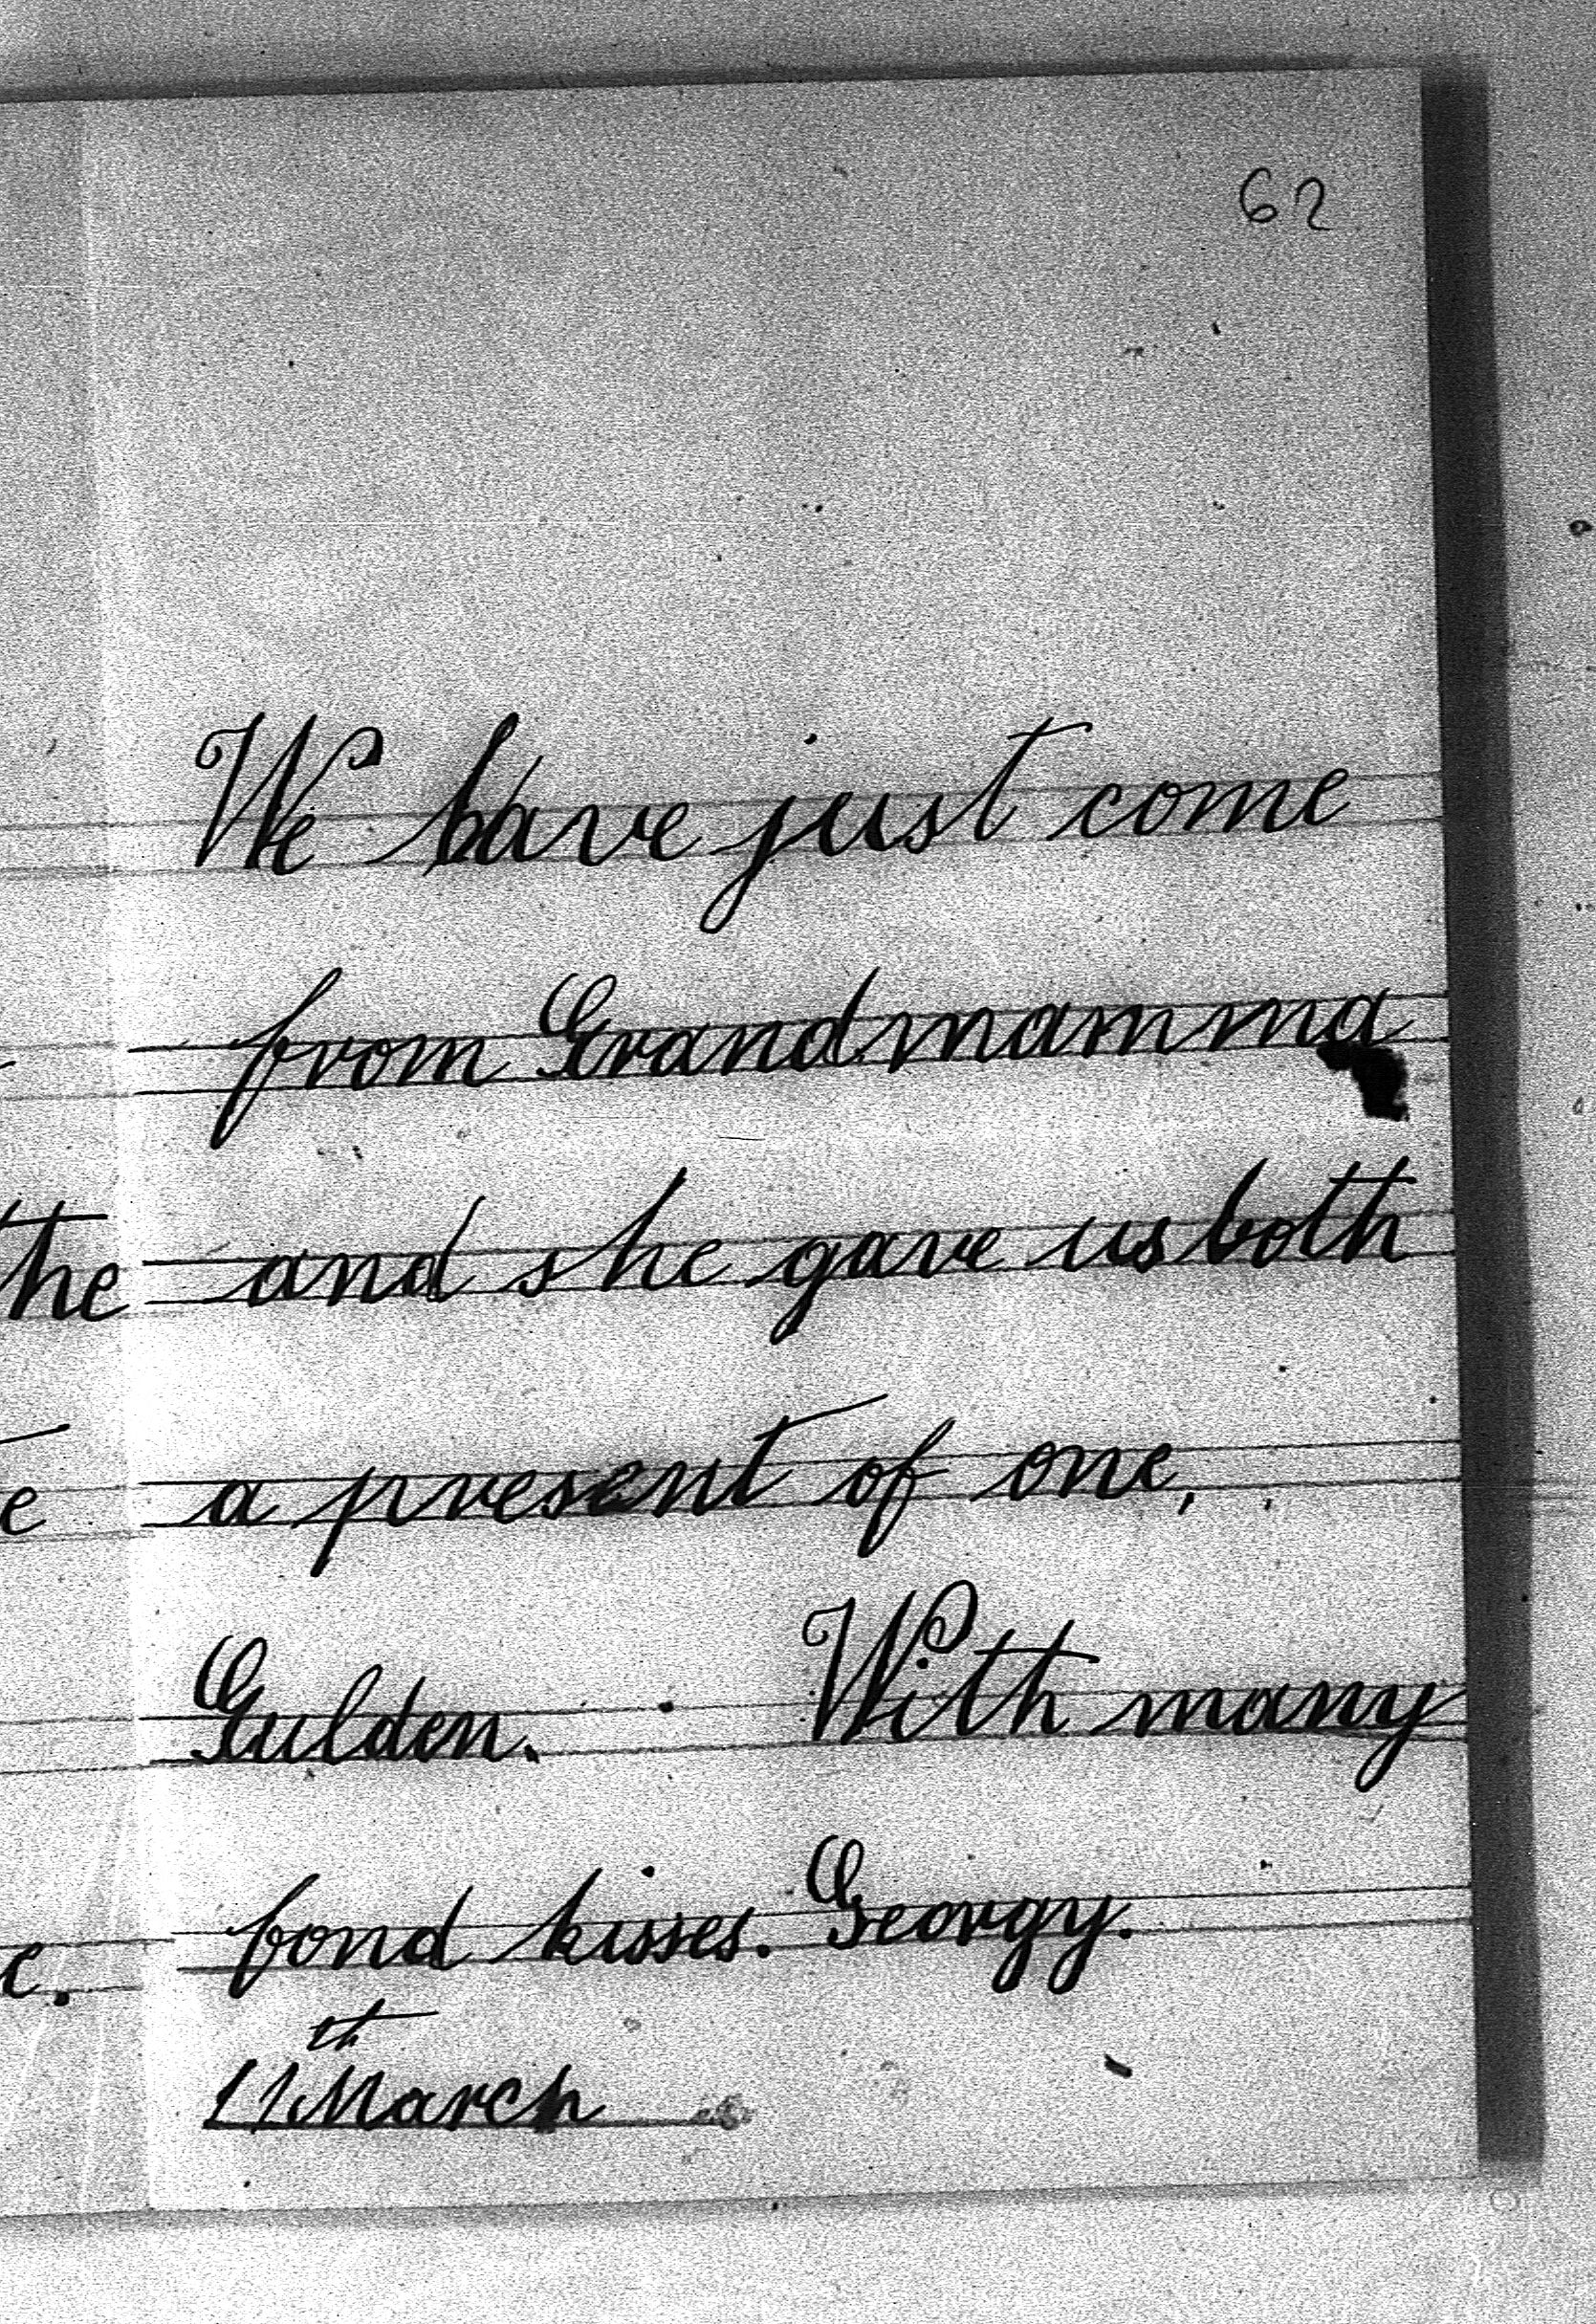 62
We have just come
from Grandmamma
the
and she gave us both
e
a present of one,
Gulden. With many
e.
fond kisses. Georgy.
11th March